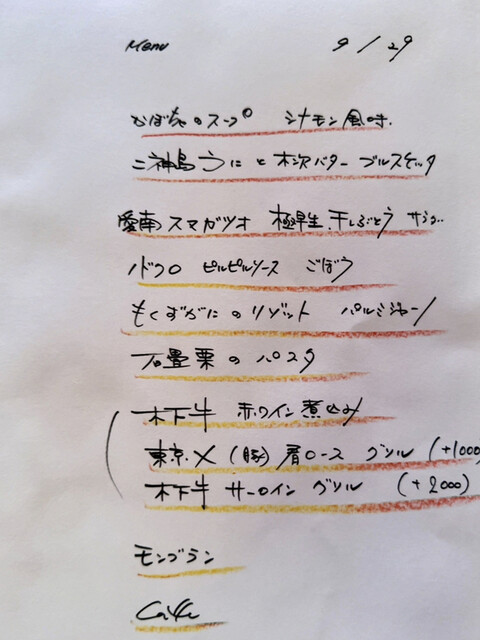 Menu 9/29
かぼちゃのスープ シナモン風味.
二神島うにと木次バター ブルスケッタ
愛南スマガツオ 極早生、干しぶどう サラダ
ノドグロ ピルピルソース ごぼう
もくずがにのリゾット パルミジャーノ
石畳栗のパスタ
木下牛 赤ワイン煮込み
東京X (豚) 肩ロース グリル (+1000
木下牛 サーロイン グリル (+2000)
モンブラン
Caffe